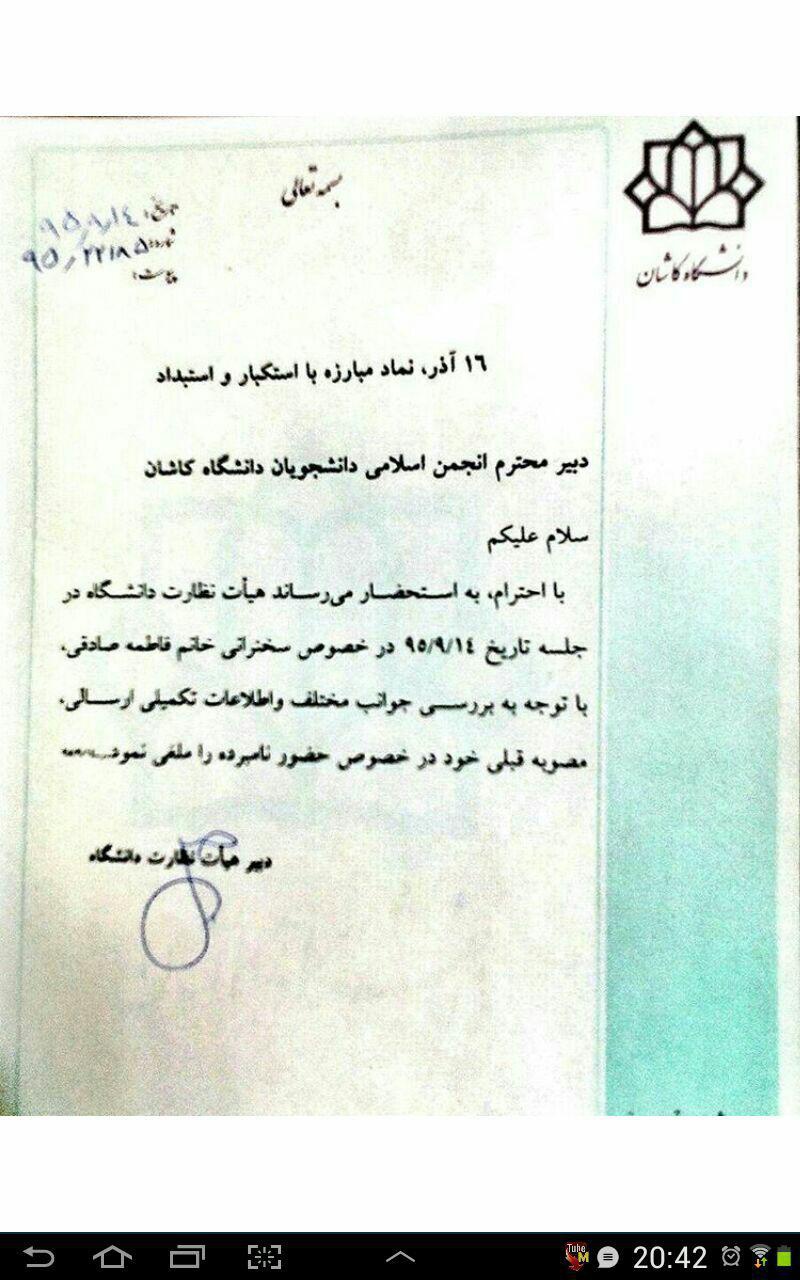 بسمه تعالی
دانشگاه کاشان
تاریخ: ۹۵/۹/۱٤
شماره: ۹۵/۲۲۱۸۵
پیوست:
۱۶ آذر، نماد مبارزه با استکبار و استبداد
دبیر محترم انجمن اسلامی دانشجویان دانشگاه کاشان
سلام علیکم
با احترام، به استحضار می‌رساند هیأت نظارت دانشگاه در
جلسه تاریخ ۹۵/۹/۱٤ در خصوص سخنرانی خانم فاطمه صادقی،
با توجه به بررسی جوانب مختلف واطلاعات تکمیلی ارسالی،
مصوبه قبلی خود در خصوص حضور نامبرده را ملغی
دبیر هیأت نظارت دانشگاه
Tube
M
20:42